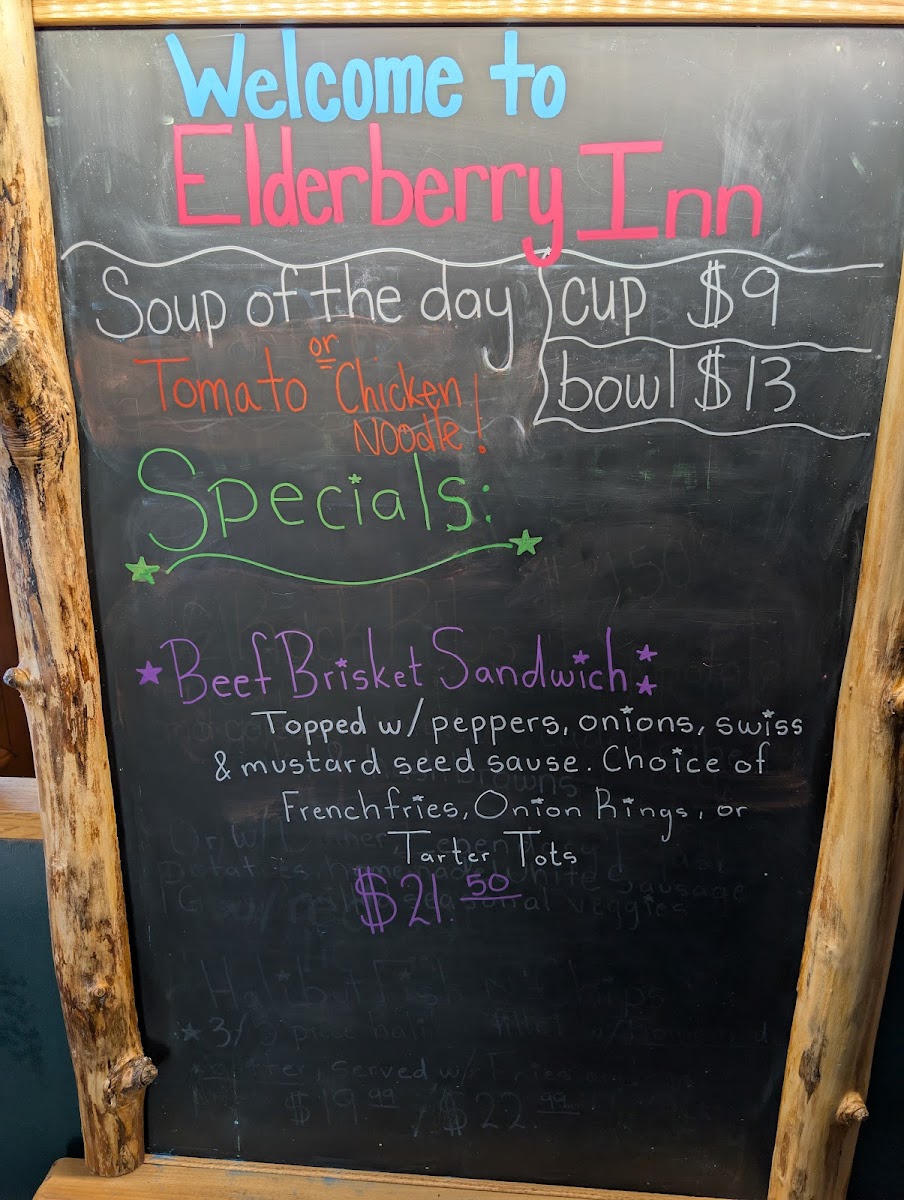 Welcome to
Elderberry Inn
Soup of the day
cup $9
bowl $13
Tomato or Chicken
Noodle!
Specials:
Beef Brisket Sandwich
Topped w/ peppers, onions, swiss
& mustard seed sause. Choice of
French fries, Onion Rings, or
Tarter Tots
$21.50
Halibut Fish N' Chips
served w/ Fries
$19.99 / $22.99